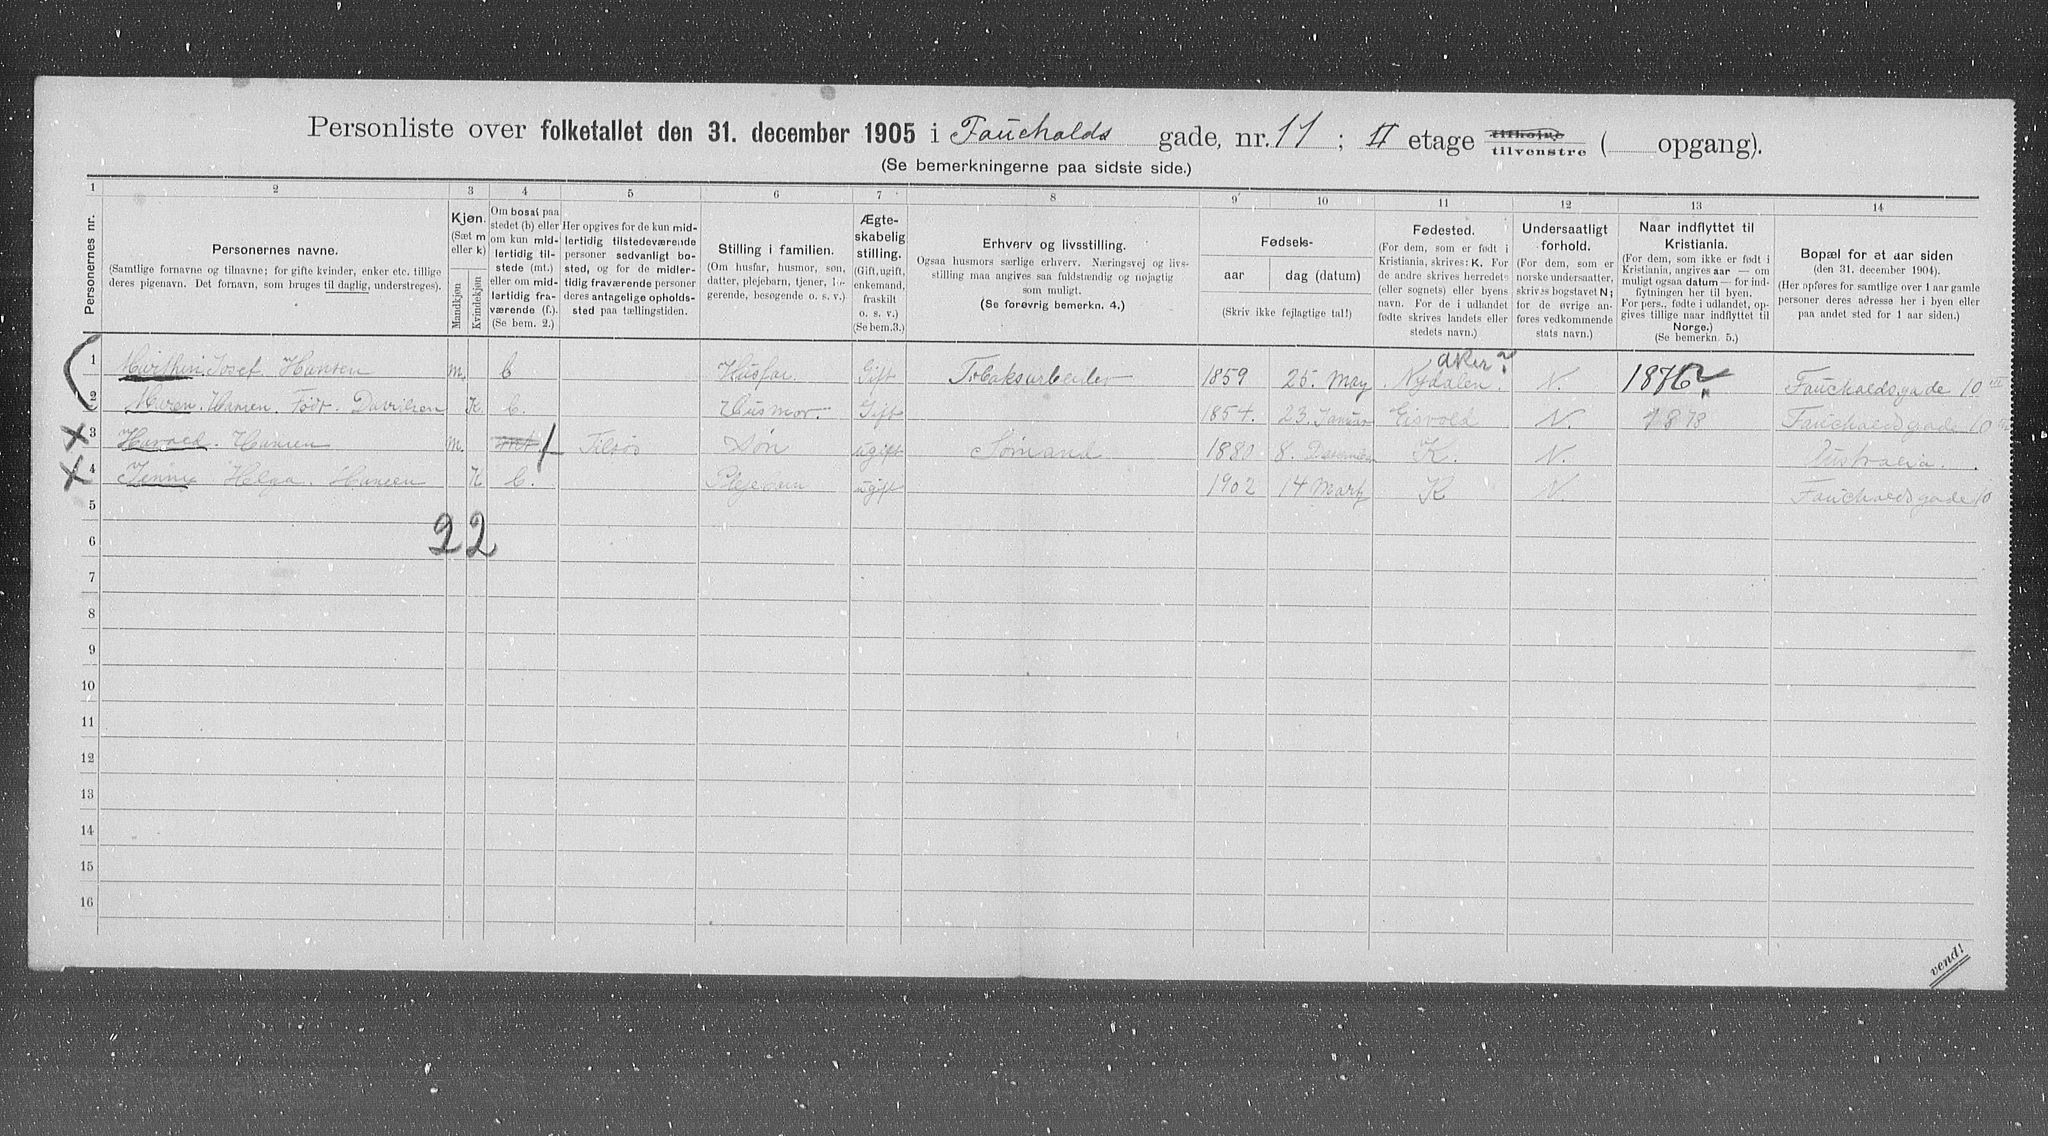 Personliste over folketallet den 31. december 1905 i Fauchalds gade, nr. 11 ; II etage tilhøire tilvenstre ( opgang).
(Se bemerkningerne paa sidste side.)
1 2 3 4 5 6 7 8 9 10 11 12 13 14
Personernes nr.
Personernes navne.
(Samtlige fornavne og tilnavne; for gifte kvinder, enker etc. tillige deres pigenavn. Det fornavn, som bruges til daglig, understreges).
Kjøn.
(Sæt m eller k)
Mandkjøn
Kvindekjøn
Om bosat paa stedet (b) eller om kun midlertidig tilstede (mt.) eller om midlertidig fraværende (f.).
(Se bem. 2.)
Her opgives for de kun midlertidig tilstedeværende personer sedvanlig bosted, og for de midlertidig fraværende personer deres antagelige opholdssted paa tællingstiden.
Stilling i familien.
(Om husfar, husmor, søn, datter, plejebarn, tjener, logerende, besøgende o. s. v.)
Ægteskabelig stilling.
(Gift, ugift, enkemand, fraskilt o. s. v.)
(Se bem.3.)
Erhverv og livsstilling.
Ogsaa husmors særlige erhverv. Næringsvej og livsstilling maa angives saa fuldstændig og nøjagtig som muligt.
(Se forøvrig bemerkn. 4.)
Fødsels-
aar
dag (datum)
(Skriv ikke fejlagtige tal!)
Fødested.
(For dem, som er født i Kristiania, skrives: K. For de andre skrives herredets (eller sognets) eller byens navn. For de i udlandet fødte skrives landets eller stedets navn.)
Undersaatligt forhold.
(For dem, som er norske undersaatter, skrives bogstavet N; for de øvrige anføres vedkommende stats navn.)
Naar indflyttet til Kristiania.
(For dem, som ikke er født i Kristiania, angives aar — om muligt ogsaa datum — for indflytningen her til byen.
For pers., fødte i udlandet, opgives tillige naar indflyttet til Norge.)
(Se bemerkn. 5.)
Bopæl for et aar siden
(den 31. december 1904).
(Her opføres for samtlige over 1 aar gamle personer deres adresse her i byen eller paa andet sted for 1 aar siden.)
1 Marthin Josef Hansen m. b Husfar. Gift Tobaksarbeider 1859 25. May Nydalen. Aker? N. 1876? Fauchaldsgade 10 III
2 Maren. Hansen. Født. Davidsen K b. Husmor. Gift 1854. 23. Januar Eisvold N. 1878 Fauchaldsgade 10
3 Harald. Hansen m. mt f Tilsøs Søn ugift Sømand 1880 8. December K. N. Australia.
4 Jenny Helga. Hansen K b. Plejebarn ugift 1902 14 Marts K N. Fauchaldsgade 10
5
2 2
6
7
8
9
10
11
12
13
14
15
16
vend!